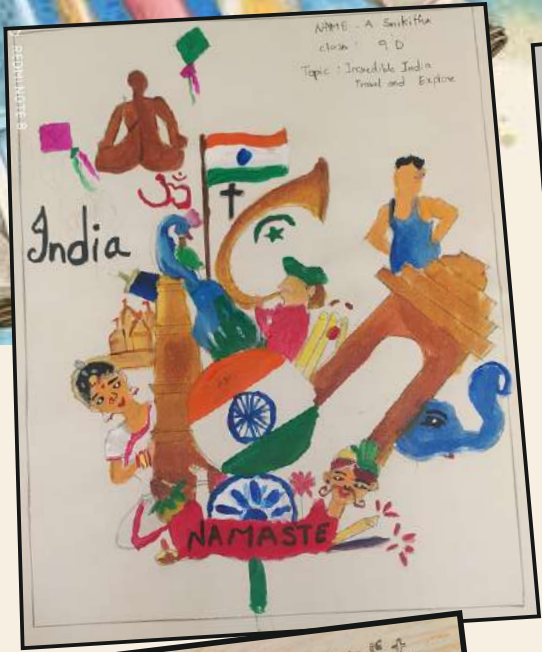 NAME - A. Snikitha
class : 9 D
Topic : Incredible India
Travel and Explore
REDMI NOTE 8
ॐ
India
NAMASTE